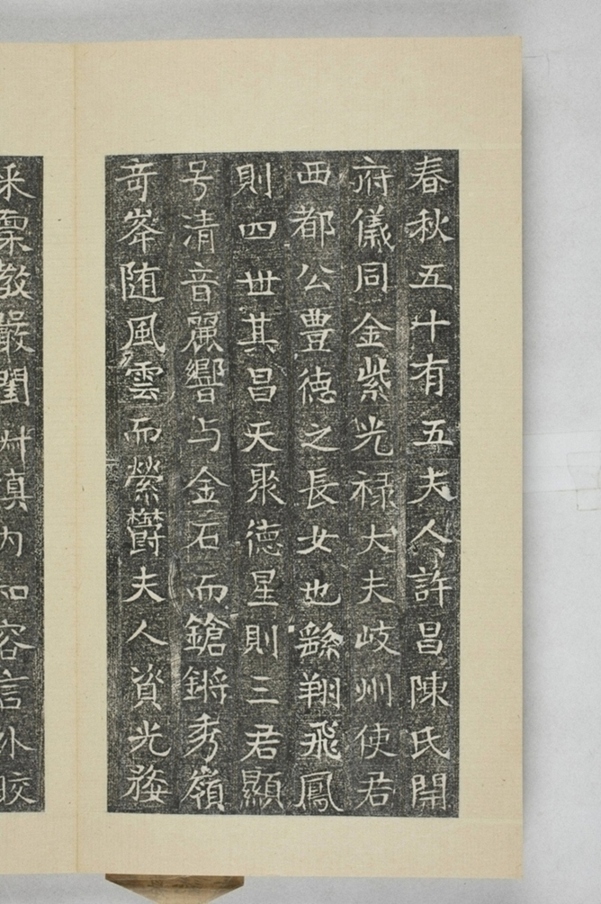 春秋五十有五夫人許昌陳氏開
府儀同金紫光禄大夫岐州使君
西都公豊徳之長女也繇翔飛鳳
則四世其昌天聚德星則三君顯
号清音麗響与金石而鎗鏘秀嶺
奇峯随風雲而縈欝夫人資光婺
采稟教嚴閨艸慎内和容言外皎